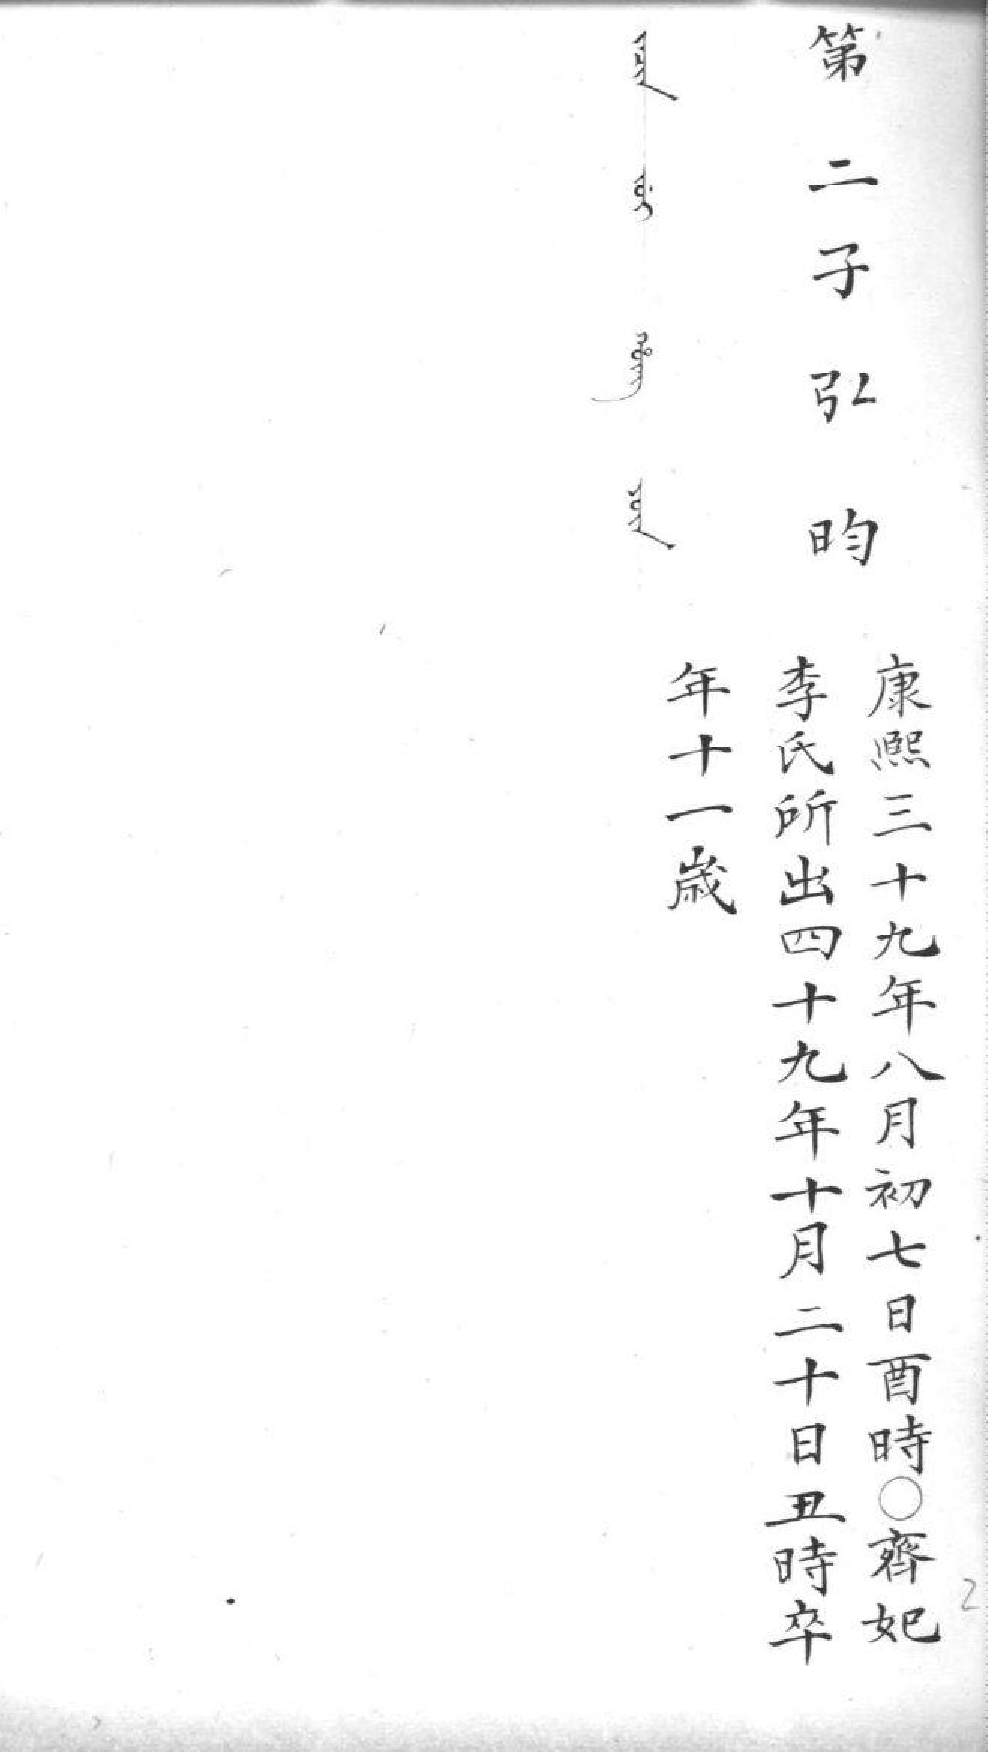 第二子弘昀
康熙三十九年八月初七日酉時○齊妃
李氏所出四十九年十月二十日丑時卒
年十一歲
2